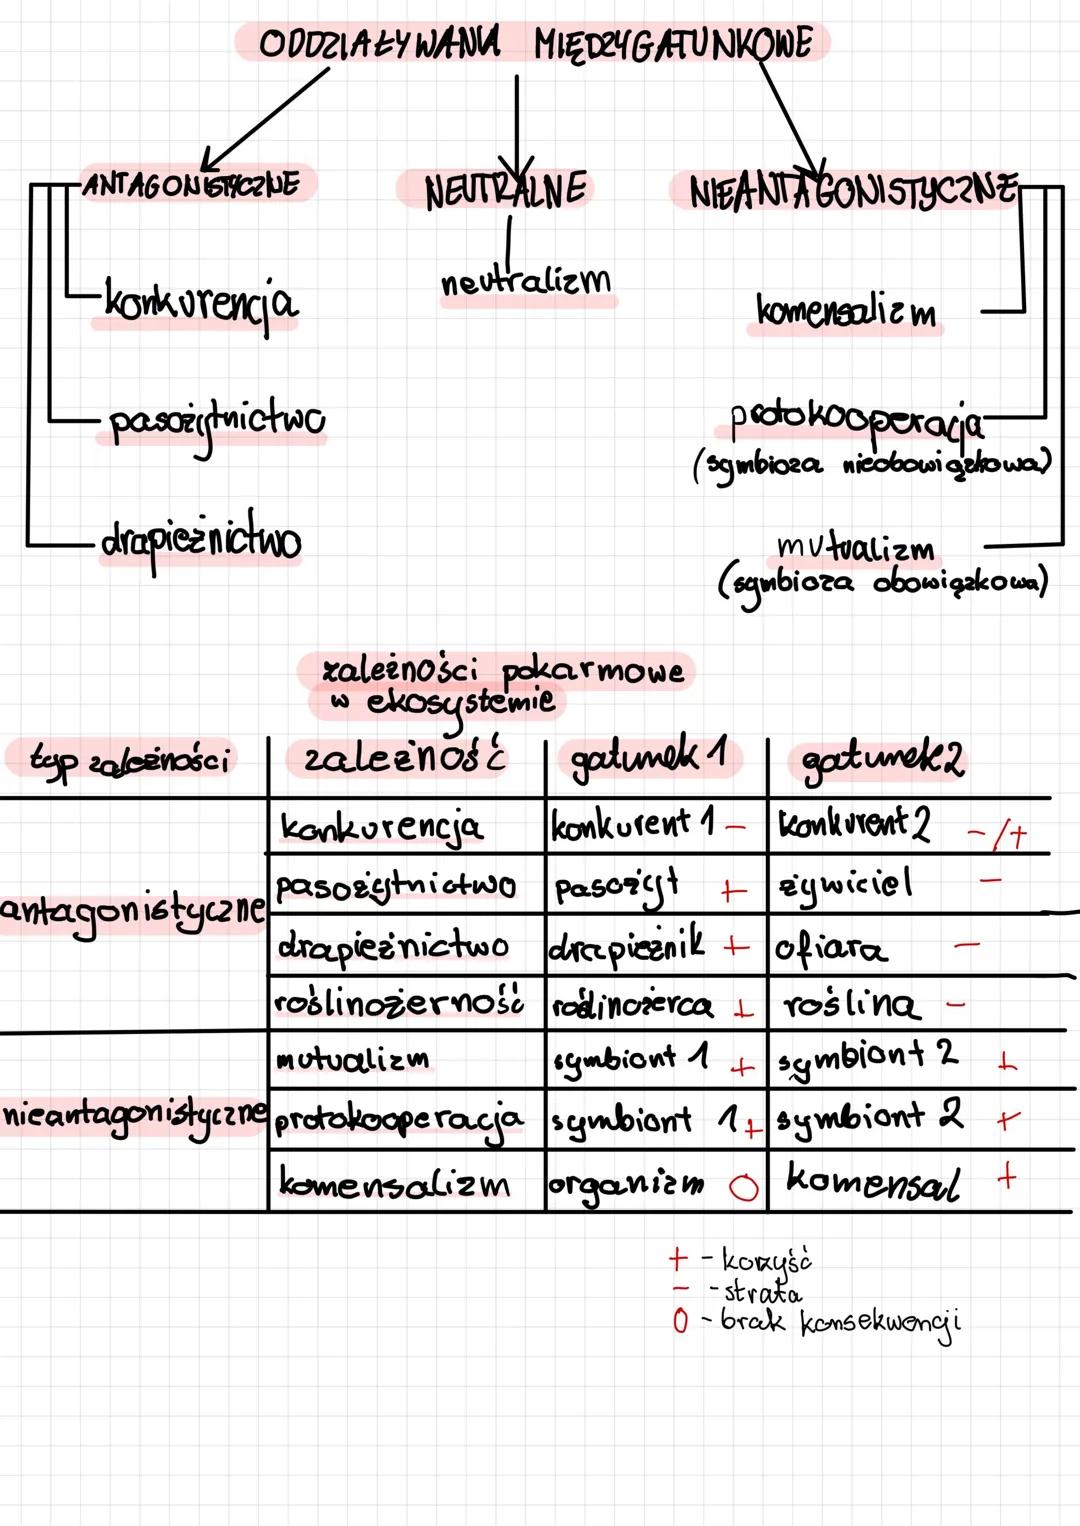 ODDZIAŁYWANIA MIĘDZYGATUNKOWE
ANTAGONISTYCZNE
NEUTRALNE
NIEANTAGONISTYCZNE
konkurencja
neutralizm
komensalizm
pasożytnictwo
protokooperacja
(symbioza nieobowiązkowa)
drapieżnictwo
mutualizm
(symbioza obowiązkowa)
zależności pokarmowe
w ekosystemie
typ zależności zależność gatunek 1 gatunek 2
antagonistyczne
konkurencja konkurent 1 - konkurent 2 -/+
pasożytnictwo pasożyt + żywiciel -
drapieżnictwo drapieżnik + ofiara -
roślinożerność roślinożerca + roślina -
nieantagonistyczne
mutualizm symbiont 1 + symbiont 2 +
protokooperacja symbiont 1 + symbiont 2 +
komensalizm organizm 0 komensal +
+ - korzyść
- - strata
0 - brak konsekwencji